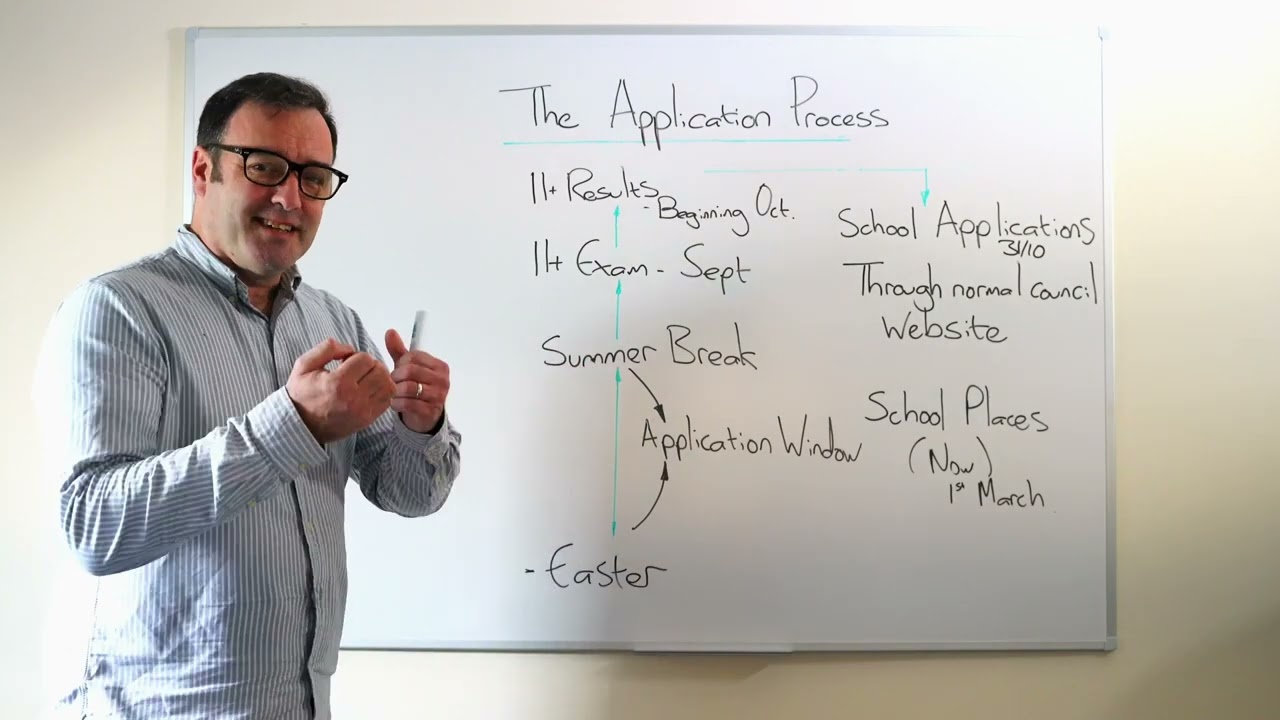 The Application Process
11+ Results
- Beginning Oct.
11+ Exam - Sept
Summer Break
Application Window
- Easter
School Applications
31/10
Through normal council
Website
School Places
(Now)
1st March